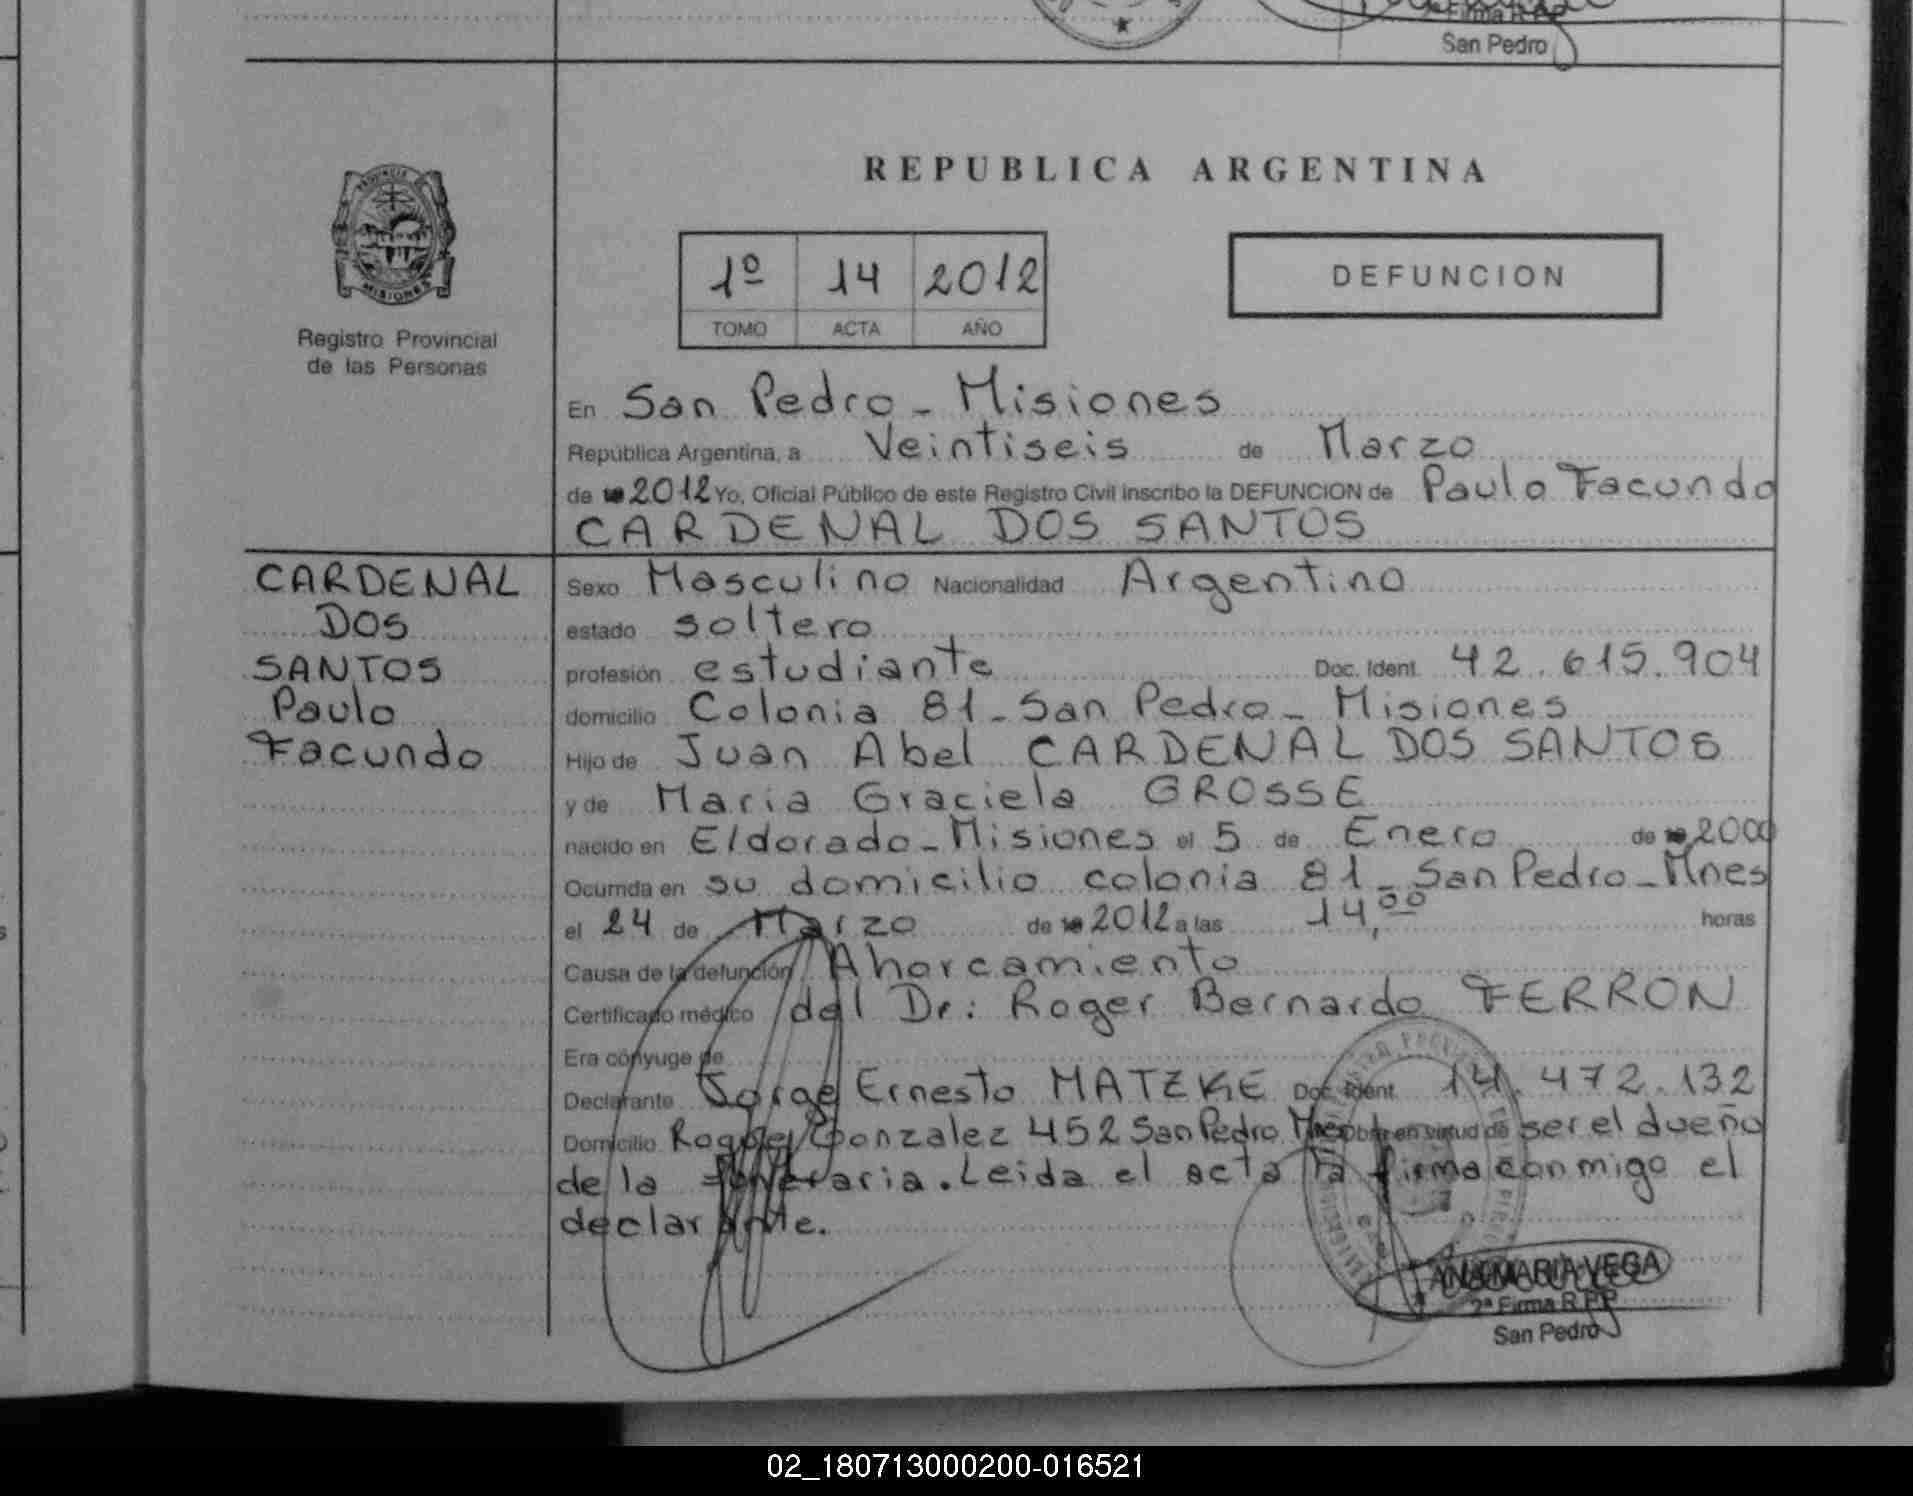 2ª Firma R.P.P
San Pedro
PROVINCIA
MISIONES
Registro Provincial
de las Personas
REPUBLICA ARGENTINA
1º 14 2012
TOMO ACTA AÑO
DEFUNCION
En San Pedro - Misiones
República Argentina, a Veintiseis de Marzo
de 2012 Yo, Oficial Público de este Registro Civil inscribo la DEFUNCION de Paulo Facundo
CARDENAL DOS SANTOS
CARDENAL
DOS
SANTOS
Paulo
Facundo
Sexo Masculino Nacionalidad Argentino
estado soltero
profesión estudiante Doc. Ident. 42.615.904
domicilio Colonia 81 - San Pedro - Misiones
Hijo de Juan Abel CARDENAL DOS SANTOS
y de Maria Graciela GROSSE
nacido en Eldorado - Misiones el 5 de Enero de 2000
Ocurrida en su domicilio colonia 81 - San Pedro - Mnes
el 24 de Marzo de 2012 a las 14,00 horas
Causa de la defunción Ahorcamiento
Certificado médico del Dr: Roger Bernardo FERRON
Era cónyuge de
Declarante Jorge Ernesto MATZKE Doc. Ident. 14.472.132
Domicilio Roque Gonzalez 452 San Pedro Mnes Obra en virtud de ser el dueño
de la funeraria. Leida el acta la firma conmigo el
declarante.
ANA MARIA VEGA
2ª Firma R.P.P
San Pedro
02_180713000200-016521